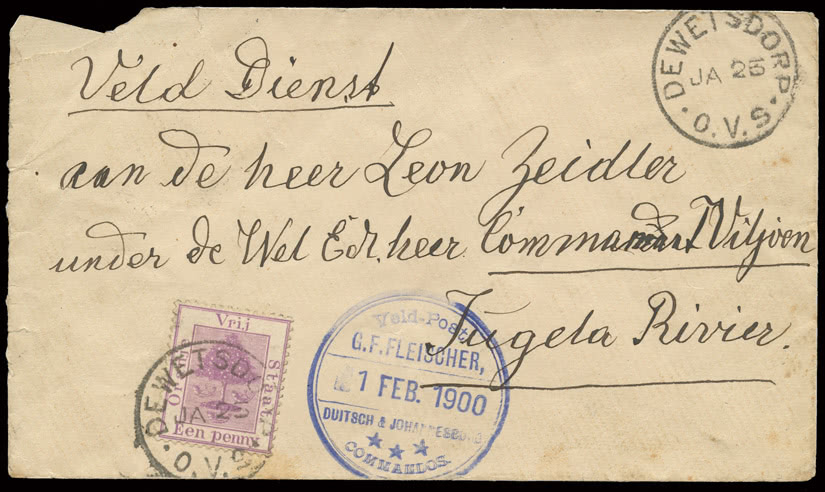 DEWETSDORP
JA 25
O.V.S.
Veld Dienst
aan de heer Leon Zeidler
under de Wel Edt. heer Commandant Viljoen
Tugela Rivier.
Vrij
Staat
Een penny
DEWETSDO
JA 25
O.V.S
Veld-Post
G.F. FLEISCHER,
1 FEB. 1900
DUITSCH & JOHANNESBURG
COMMANDOS.